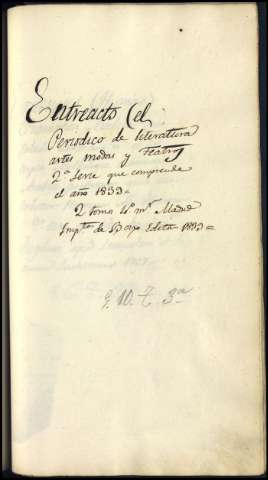 Entreacto (el
Periodico de literatura
artes modas y Teatros
2ª Serie que comprende
el año 1839=
2 tomos 4º mª Madrid
Impta de Boix Edita 1839=
10. 3ª